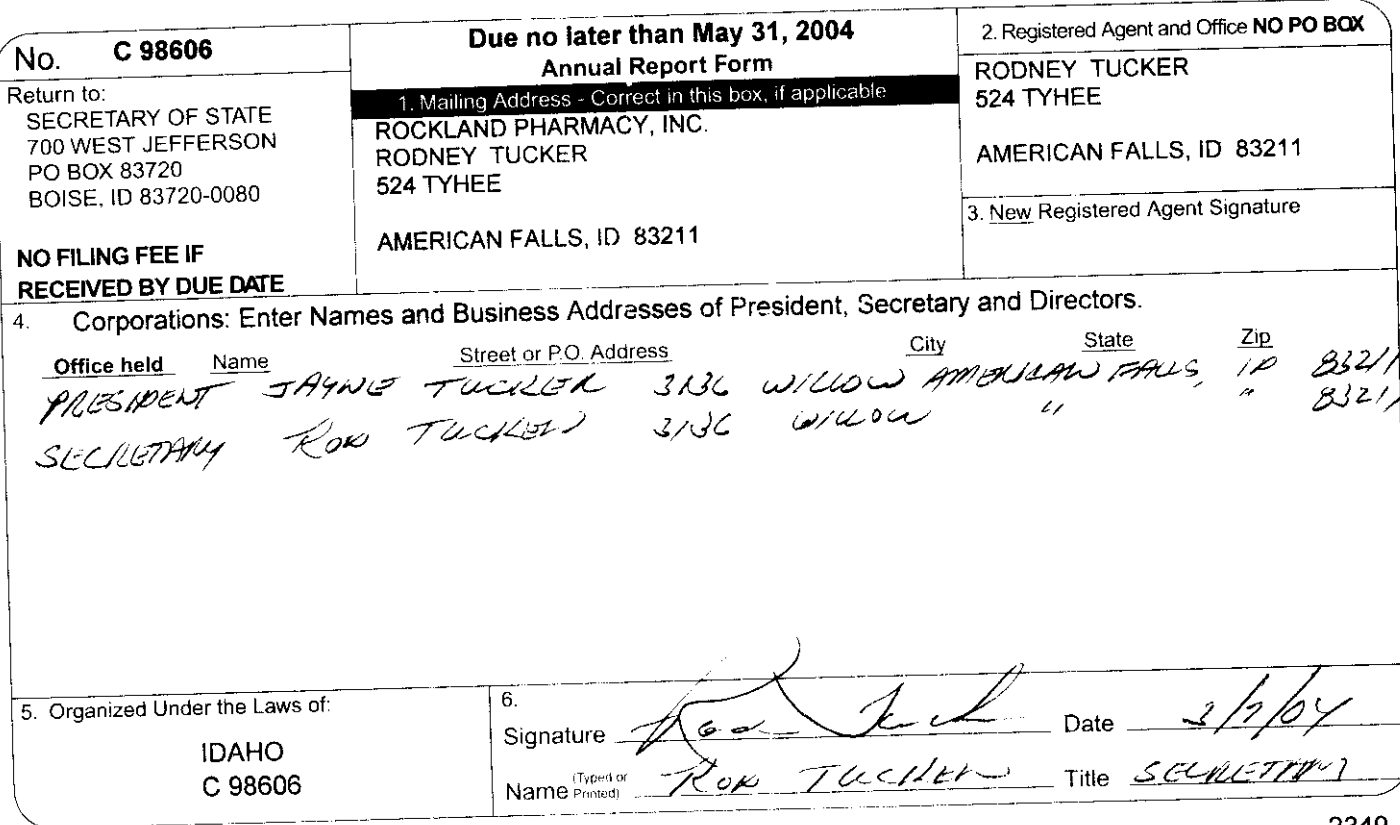 No. C 98606
Return to:
SECRETARY OF STATE
700 WEST JEFFERSON
PO BOX 83720
BOISE, ID 83720-0080
NO FILING FEE IF
RECEIVED BY DUE DATE
Due no later than May 31, 2004
Annual Report Form
1. Mailing Address - Correct in this box, if applicable
ROCKLAND PHARMACY, INC.
RODNEY TUCKER
524 TYHEE
AMERICAN FALLS, ID 83211
2. Registered Agent and Office NO PO BOX
RODNEY TUCKER
524 TYHEE
AMERICAN FALLS, ID 83211
3. New Registered Agent Signature
4. Corporations: Enter Names and Business Addresses of President, Secretary and Directors.
Office held Name Street or P.O. Address City State Zip
PRESIDENT JAYNE TUCKER WILLOW AMERICAN FALLS, ID 83211
SECRETARY TUCKER WILLOW " " 83211
5. Organized Under the Laws of:
IDAHO
C 98606
6.
Signature Date
Name (Typed or Printed) TUCKER Title SECRETARY